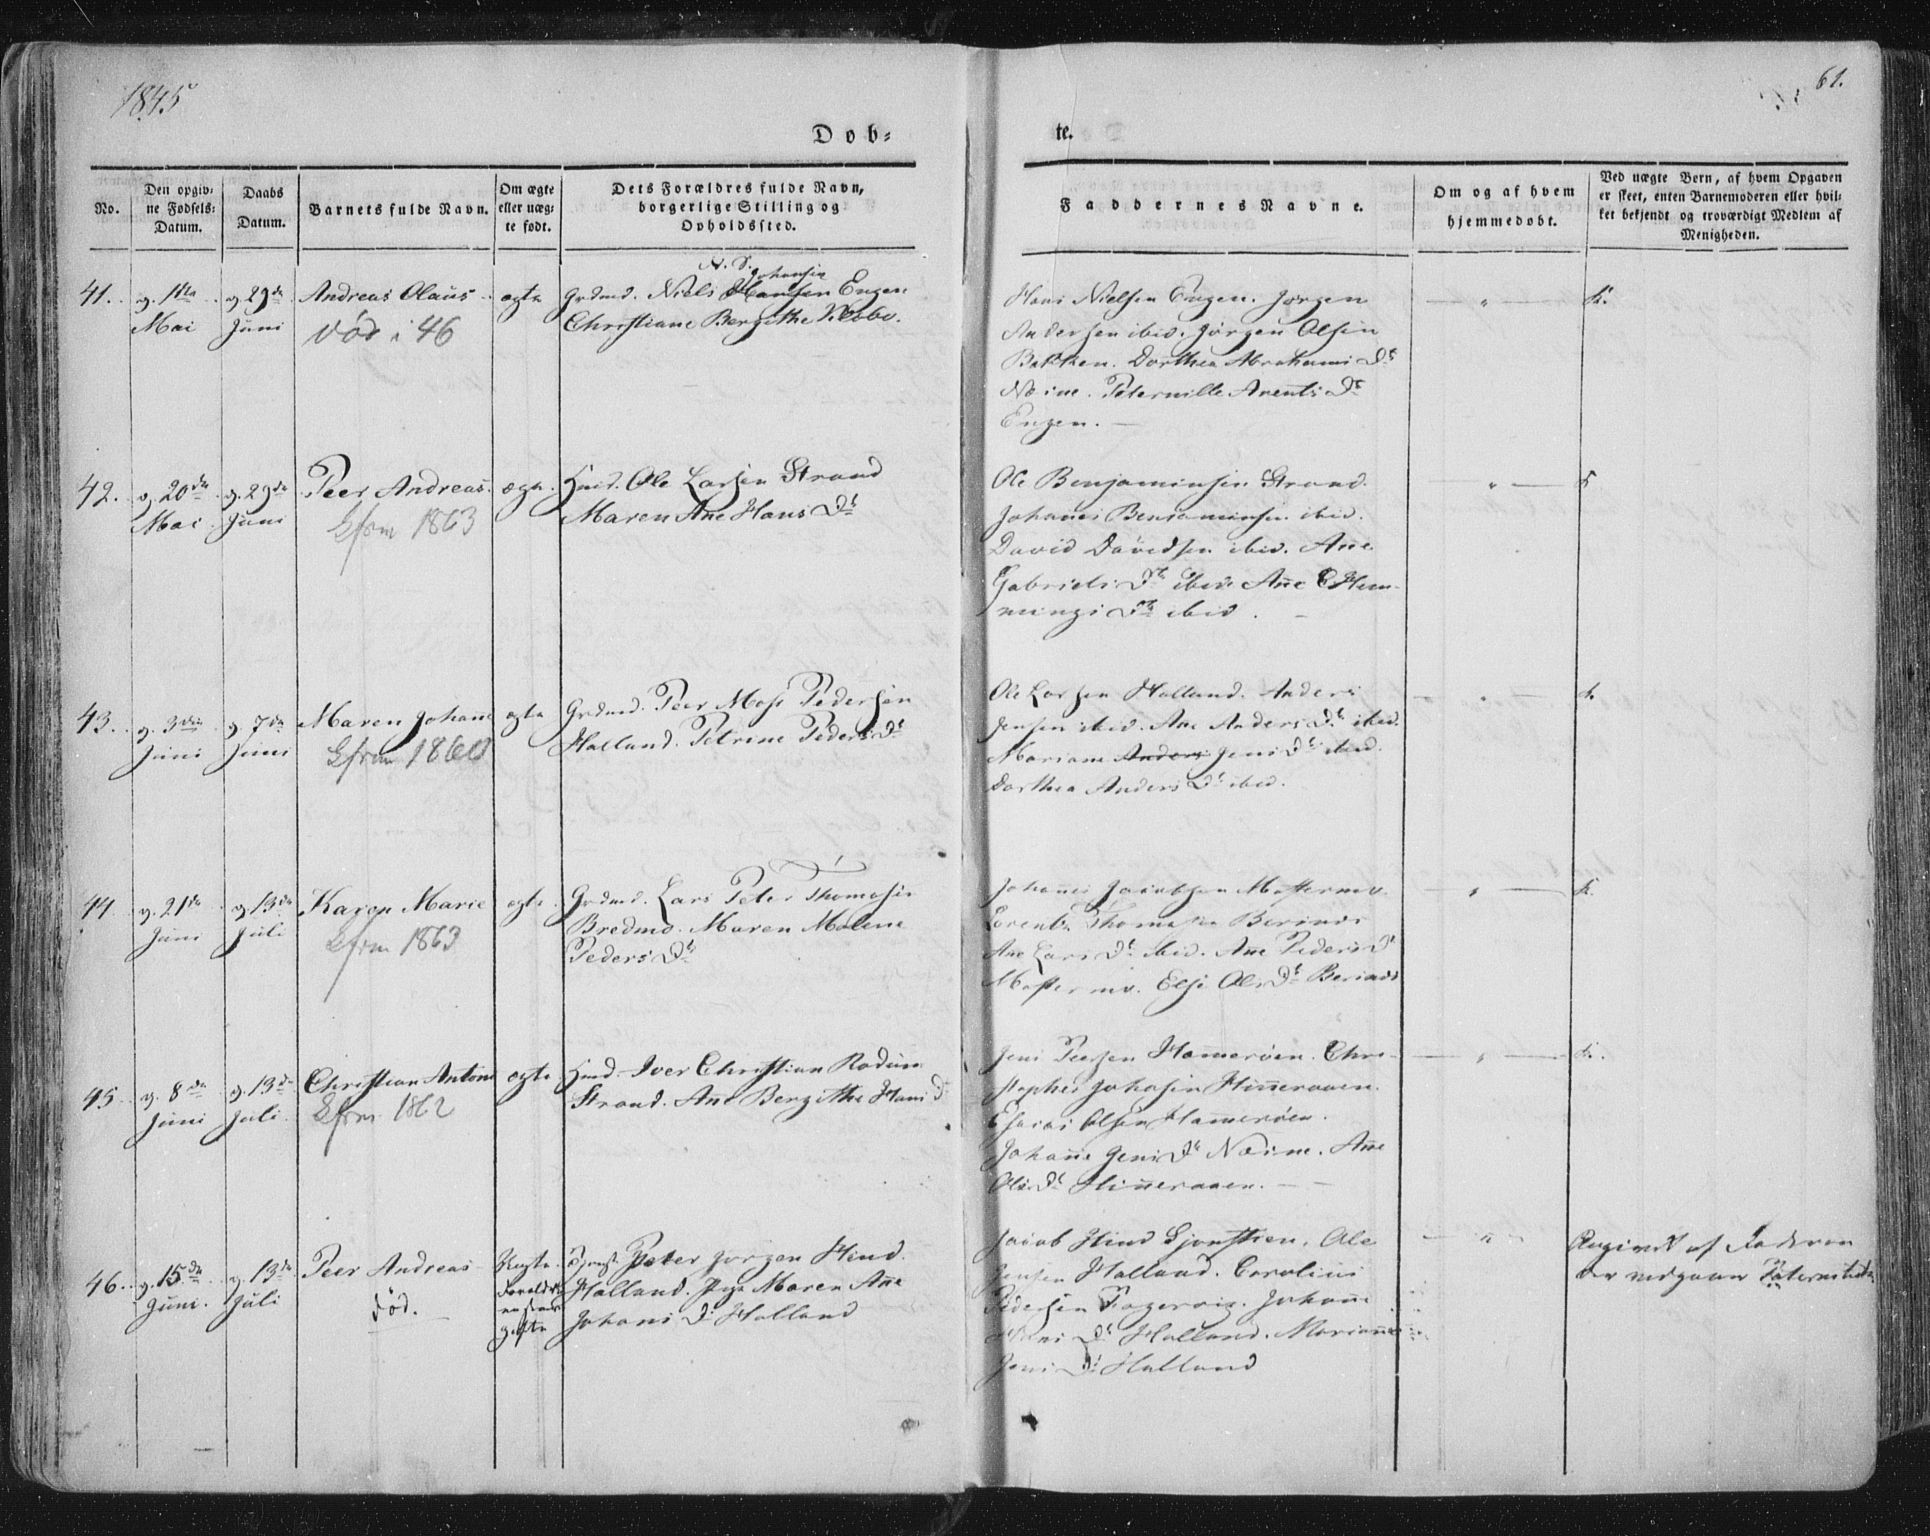 1845
61.
Døb-
te.
No.
Den opgiv-
ne Fødsels-
Datum.
Daabs
Datum.
Barnets fulde Navn.
Om ægte
eller uæg-
te født.
Dets Forældres fulde Navn,
borgerlige Stilling og
Opholdssted.
Faddernes Navne.
Om og af hvem
hjemmedøbt.
Ved uægte Børn, af hvem Opgaven
er skeet, enten Barnemoderen eller hvil-
ket bekjendt og troværdigt Medlem af
Menigheden.
41.
d. 1ste
Mai
d. 29de
Juni
Andreas Olaus
død i 46
ægte
Grdmd. Niels Hansen Engen
Johansen
Christiane Bergithe
Hans Nielsen Engen. Jørgen
Andersen ibid. Jørgen Olsen
Bakken. Dorthea Abrahams Dr
Næine. Peternille Arents Dr
Engen.
k.
42.
d. 20de
Mai
d. 29de
Juni
Peer Andreas
Cfrm 1863
ægte
Hmd. Ole Larsen Strand
Maren Ane Hans Dr
Ole Benjaminsen Strand.
Johannes Benjaminsen ibid.
David Davidsen ibid. Ane
Gabriels Dr ibid. Ane C Hem-
mings Dr ibid.
k
43.
d. 3die
Juni
d. 7de
Juni
Maren Johane
Cfrm 1860
ægte
Grdmd. Peer Mosi Pedersen
Halland. Petrine Peders Dr
Ole Larsen Halland. Anders
Jensen ibid. Ane Anders Dr ibid.
Mariane Anders Jens Dr ibid.
Dorthea Anders Dr ibid.
k
44
d. 21de
Juni
d. 13de
Juli
Karen Marie
Cfrm 1863
ægte
Grdmd. Lars Peter Thomasen
Bredmo. Maren Malene
Peders Dr
Johannes Jacobsen Mostermo.
Lorents Thomasen
Ane Lars Dr ibid. Ane Peders Dr
Mostermo. Else Ols Dr
k.
45.
d. 8de
Juni
d. 13de
Juli
Christian Anton
Cfrm 1862
ægte
Hmd. Iver Christian
Strand. Ane Bergithe Hans D
Jens Peersen Hammerøen. Chri-
stopher Johansen
Esaias Olsen Hammerøen.
Johanne Jens Dr Næine. Ane
Ols Dr
k.
46
d. 15de
Juni.
d. 13de
Juli
Peer Andreas
død.
Uægte
gifte
Peter Jørgen Hind.
Halland. Pige Maren Ane
Johans Dr Halland
Jacob Hind Ole
Jensen Halland. Carolius
Pedersen Fagervig. Johanne
Hans Dr Halland. Mariane
Jens Dr Halland
Angivet af Faderen
der vedgaar Paterniteten